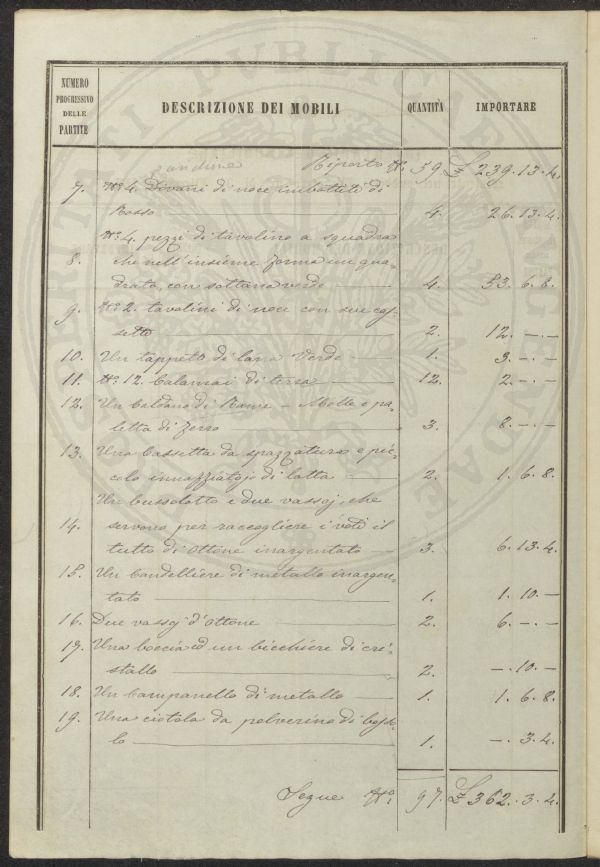 PROSPERITATI PVBLICAE AVGENDAE
NUMERO PROGRESSIVO DELLE PARTITE
DESCRIZIONE DEI MOBILI
QUANTITÀ
IMPORTARE
Riporto N.° 59 £ 239. 13. 4.
7. N.° 4. Divani di noce imbottiti di
Rosso 4. 26. 13. 4.
N.° 4. pezzi di tavolino a squadra
8. che nell'insieme forma un qua-
drato, con sottana verde 4. 53. 6. 8.
9. N.° 2. tavolini di noce con sue cas-
sette 2. 12. -. -
10. Un tappeto di lana Verde 1. 3. -. -
11. N.° 12. Calamai di terra 12. 2. -. -
12. Un Caldano di Rame - Molle e pa-
letta di ferro 3. 8. -. -
13. Una Cassetta da spazzatura e pic-
colo innaffiatojo di latta 2. 1. 6. 8.
Un bussolotto e due vassoj, che
14. servono per raccogliere i voti il
tutto di ottone inargentato 3. 6. 13. 4.
15. Un Candelliere di metallo inargen-
tato 1. 1. 10. -
16. Due vassoj d'Ottone 2. 6. -. -
17. Una boccia ed un bicchiere di cri-
stallo 2. -. 10. -
18. Un Campanello di metallo 1. 1. 6. 8.
19. Una ciotola da polverino di bosso-
lo 1. -. 3. 4.
Segue N.° 97. £ 362. 3. 4.